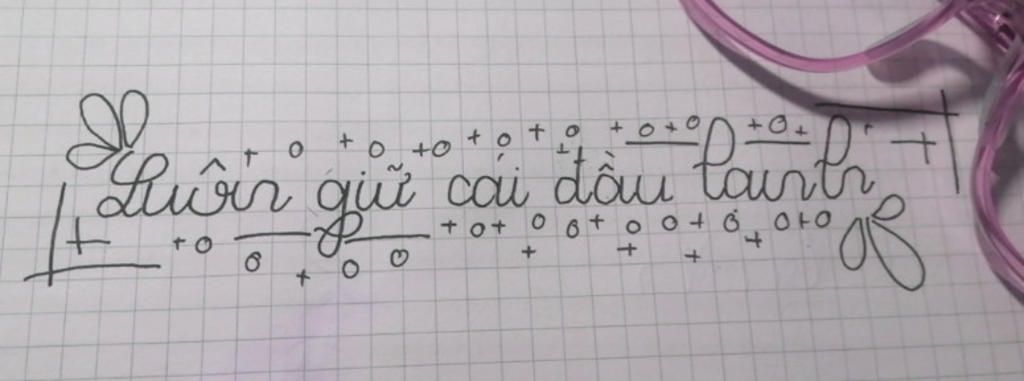 Luôn giữ cái đầu lạnh